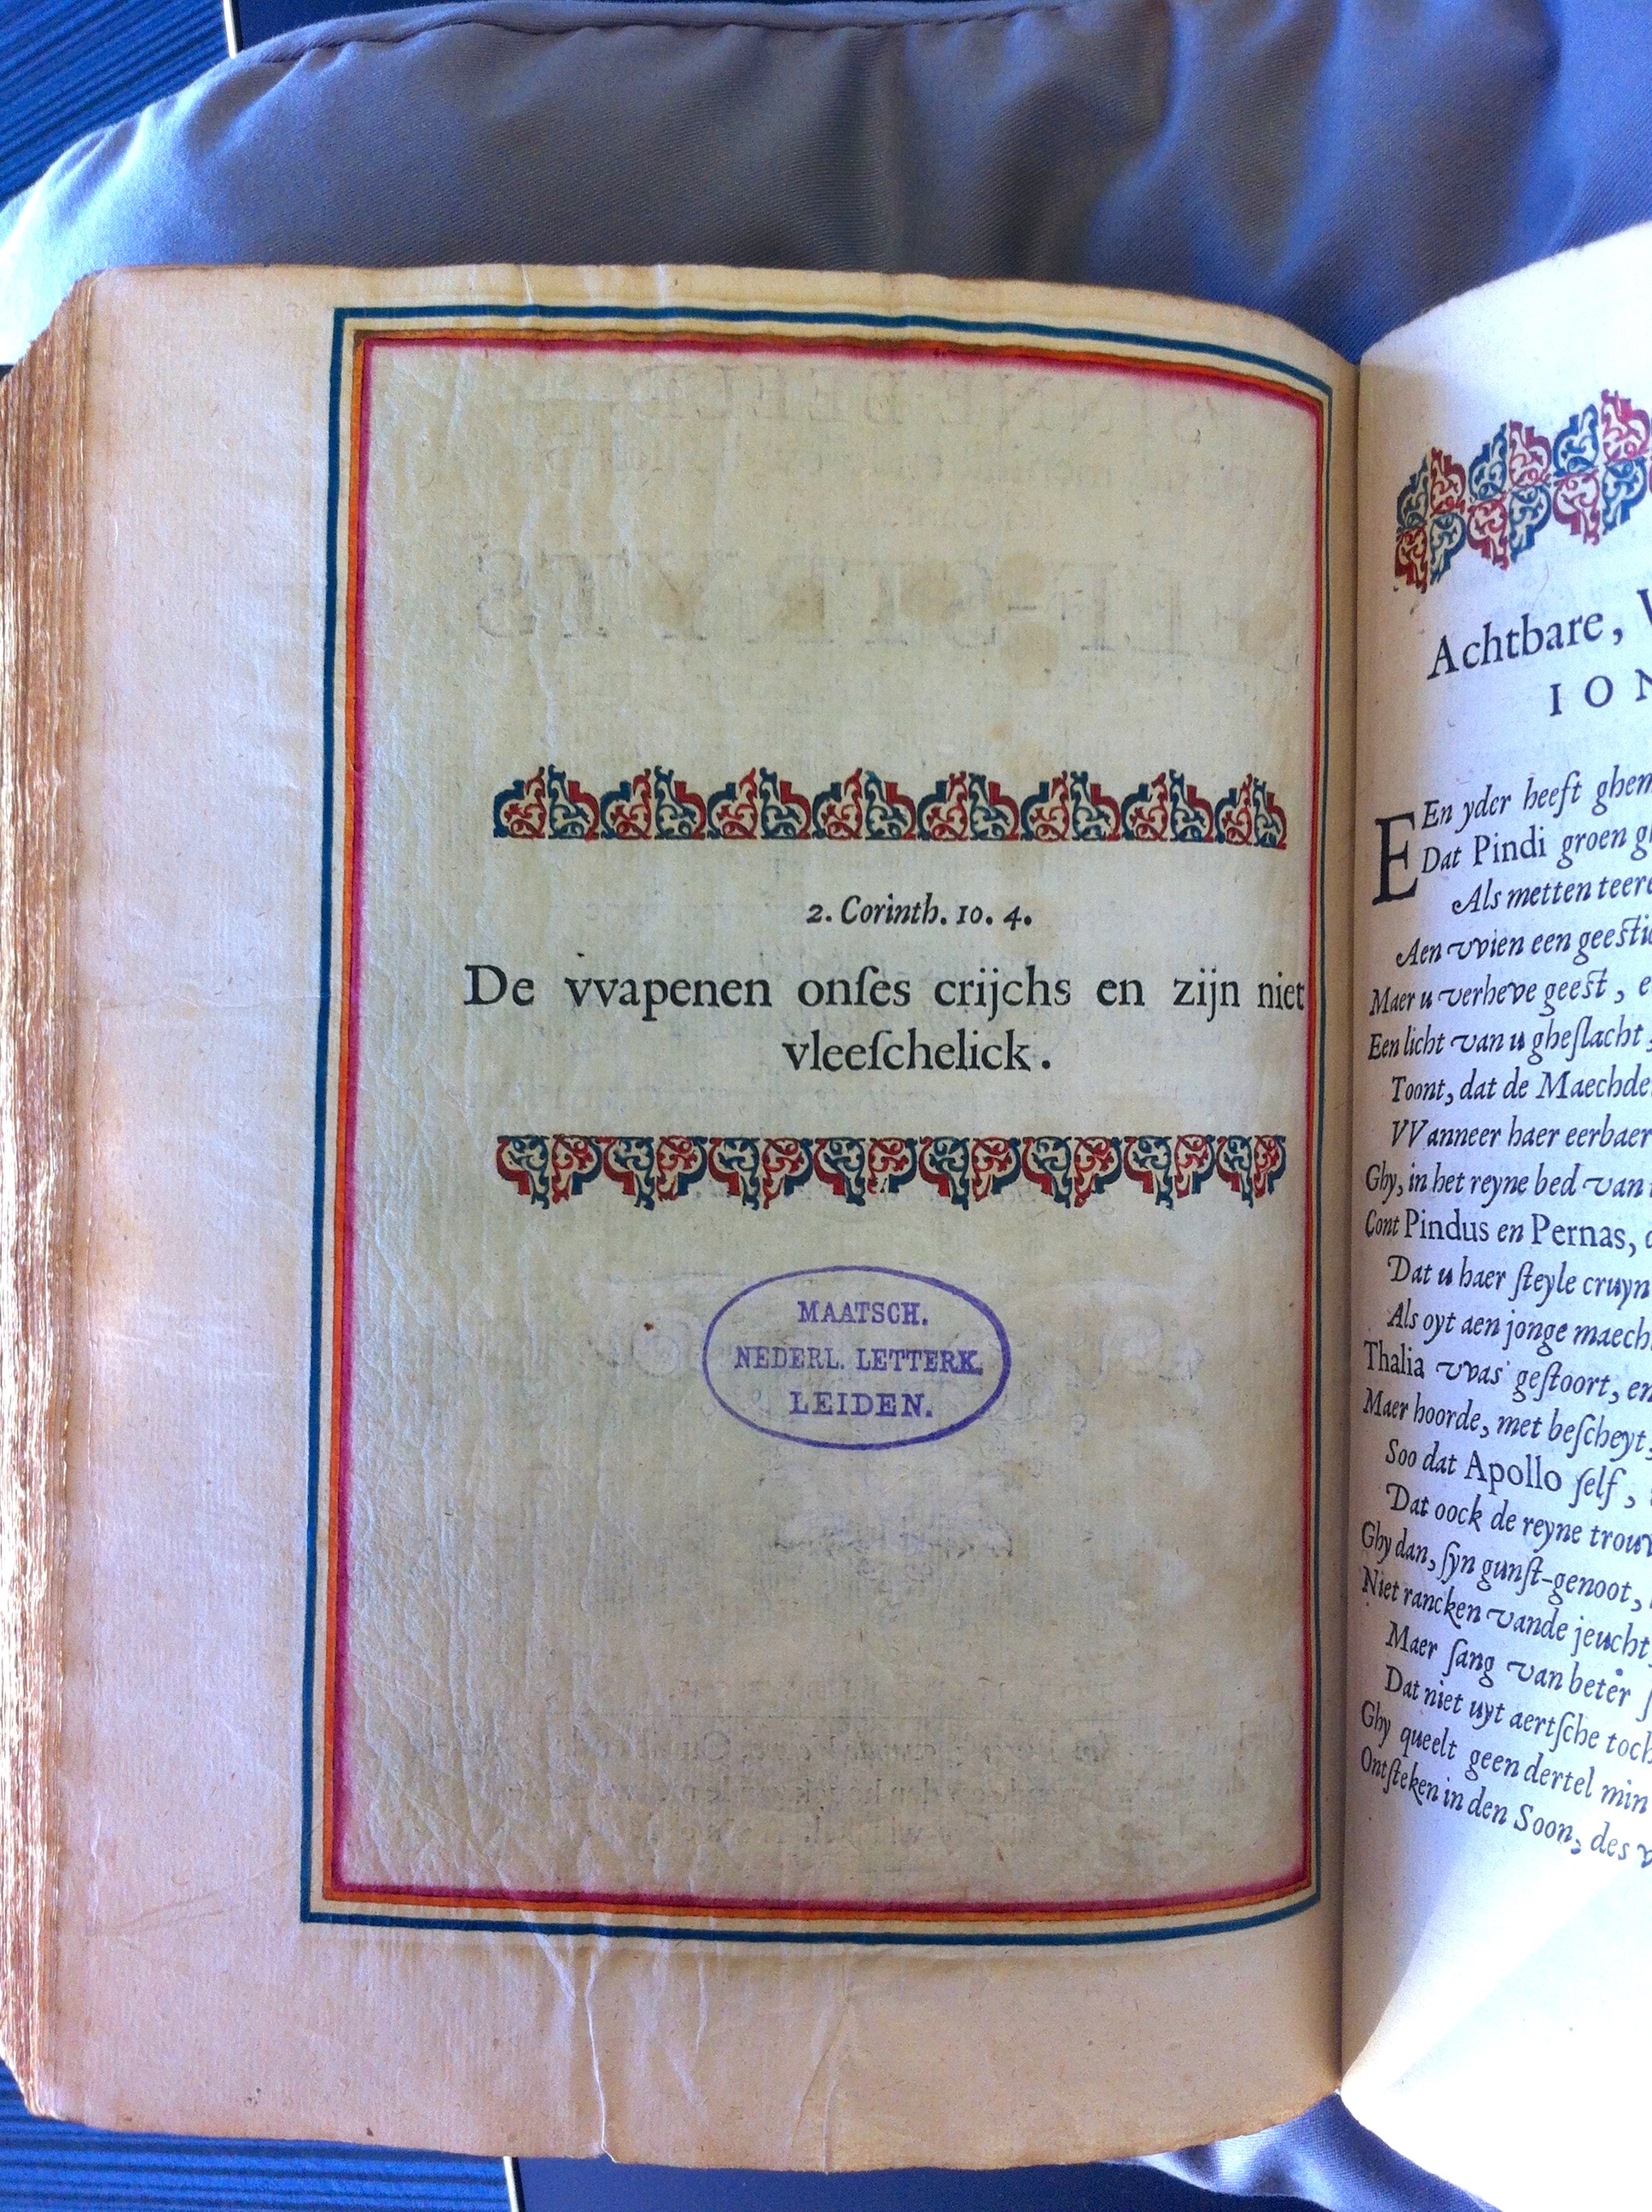 2. Corinth. 10. 4.
De vvapenen onſes crijchs en zijn niet
vleeſchelick.
MAATSCH.
NEDERL. LETTERK.
LEIDEN.
Achtbare,
ION
EEn yder heeft ghem
Dat Pindi groen
Als metten teer
Aen vvien een geeſti
Maer u verheve geeſt, e
Een licht van u gheſlacht
Toont, dat de Maechde
VVanneer haer eerbaer
Ghy, in het reyne bed van
Cont Pindus en Pernas,
Dat u haer ſteyle cruyn
Als oyt aen jonge maech
Thalia vvas geſtoort, en
Maer hoorde, met beſcheyt,
Soo dat Apollo ſelf,
Dat oock de reyne trouv
Ghy dan, ſyn gunſt-genoot,
Niet rancken vande jeucht
Maer ſang van beter
Dat niet uyt aertſche toch
Ghy queelt geen dertel min
Ontſteken in den Soon, des